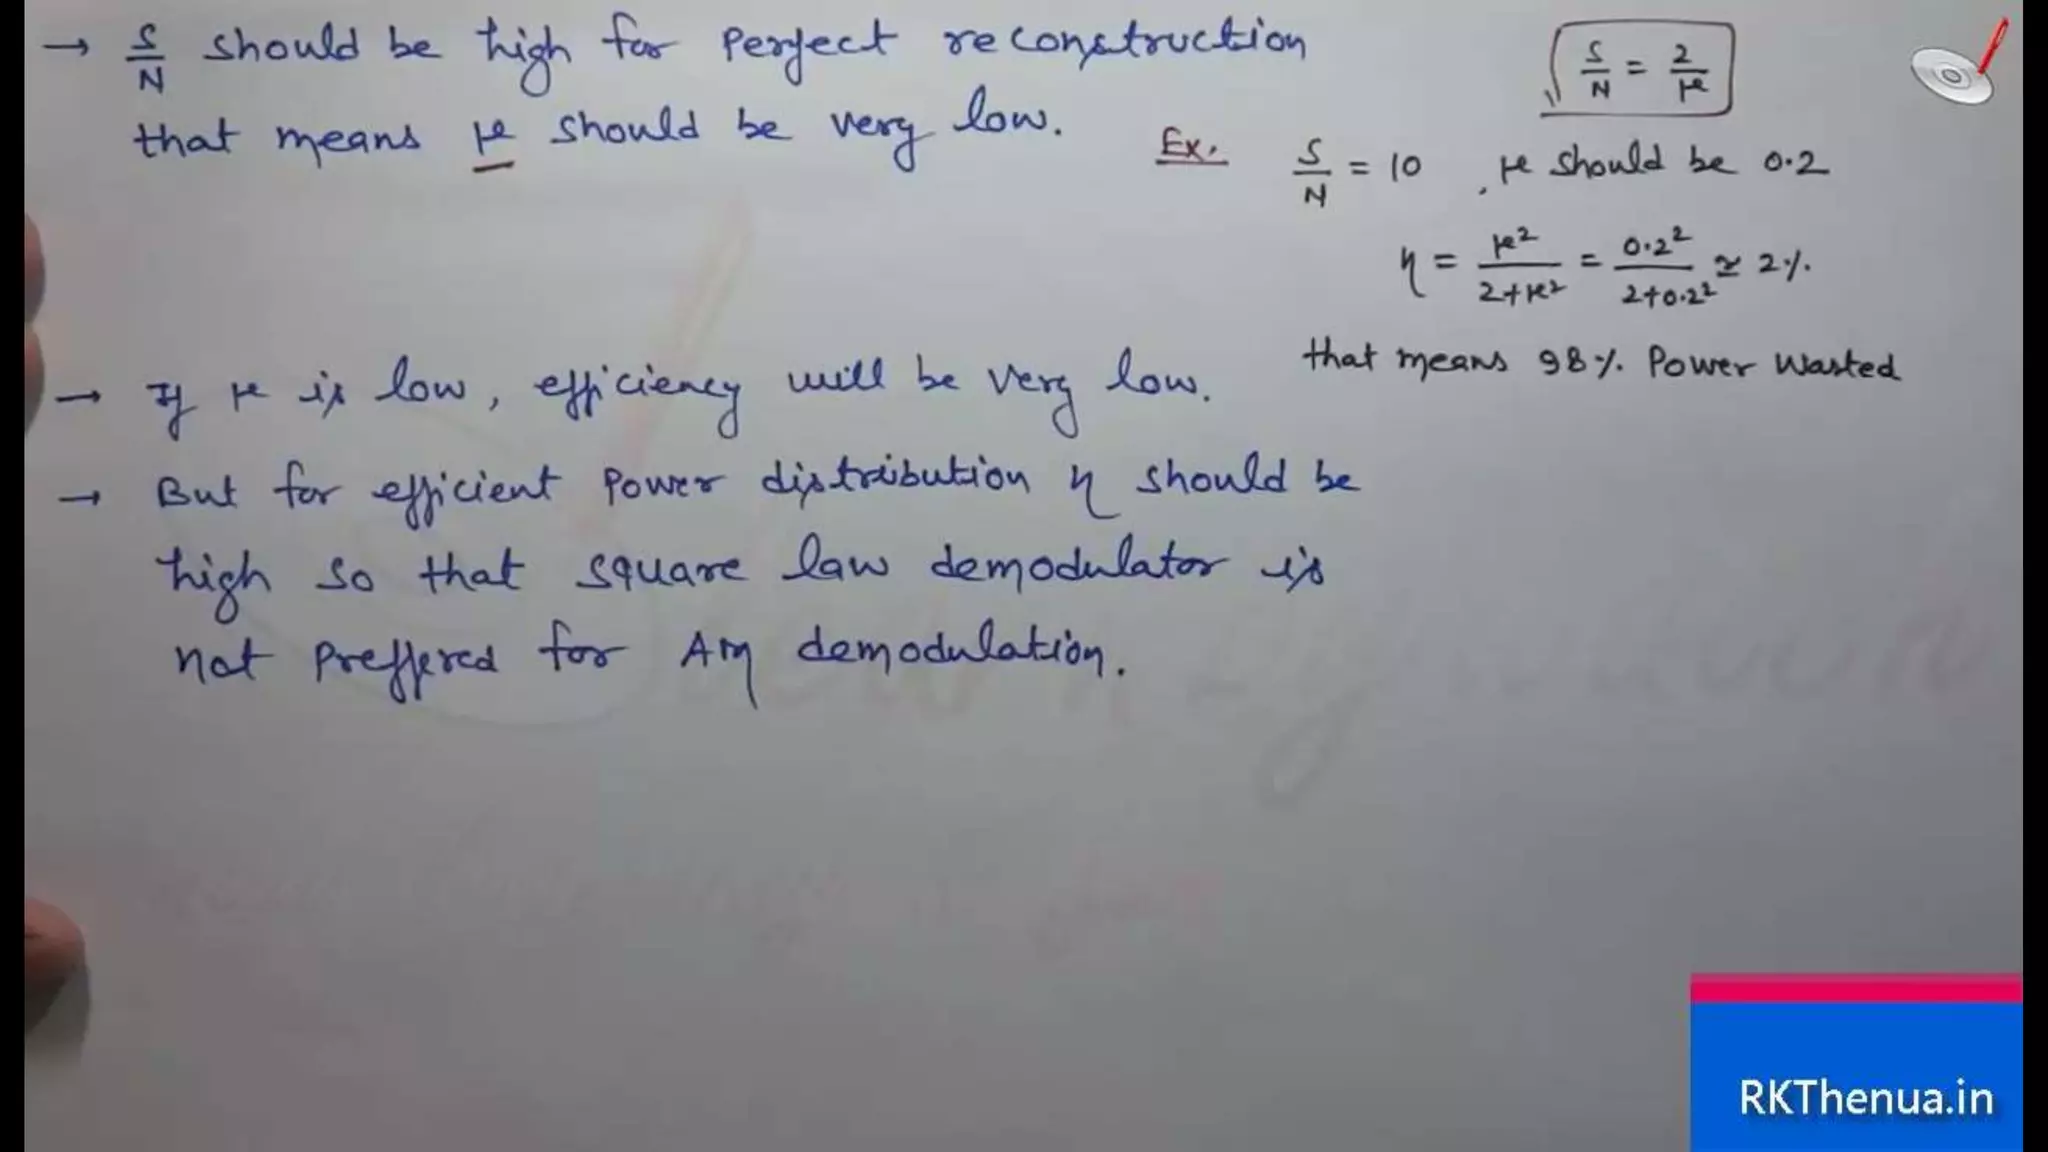 → S/N should be high for perfect reconstruction
that means μ should be very low.
S/N = 2/μ
Ex. S/N = 10 , μ should be 0.2
η = μ²/2+μ² = 0.2²/2+0.2² ≃ 2%
that means 98% Power Wasted
→ If μ is low, efficiency will be very low.
→ But for efficient Power distribution η should be
high so that square law demodulator is
not preffered for AM demodulation.
RKThenua.in